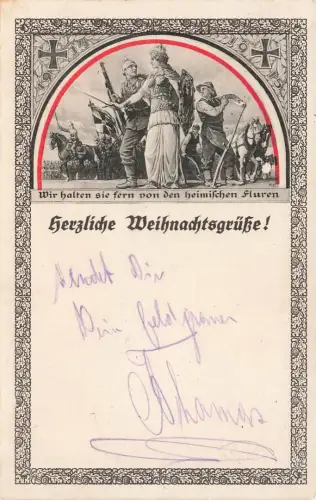 Wir halten sie fern von den heimischen Fluren
Herzliche Weihnachtsgrüße!
sendet Dir
Dein feldgrauer
Thomas